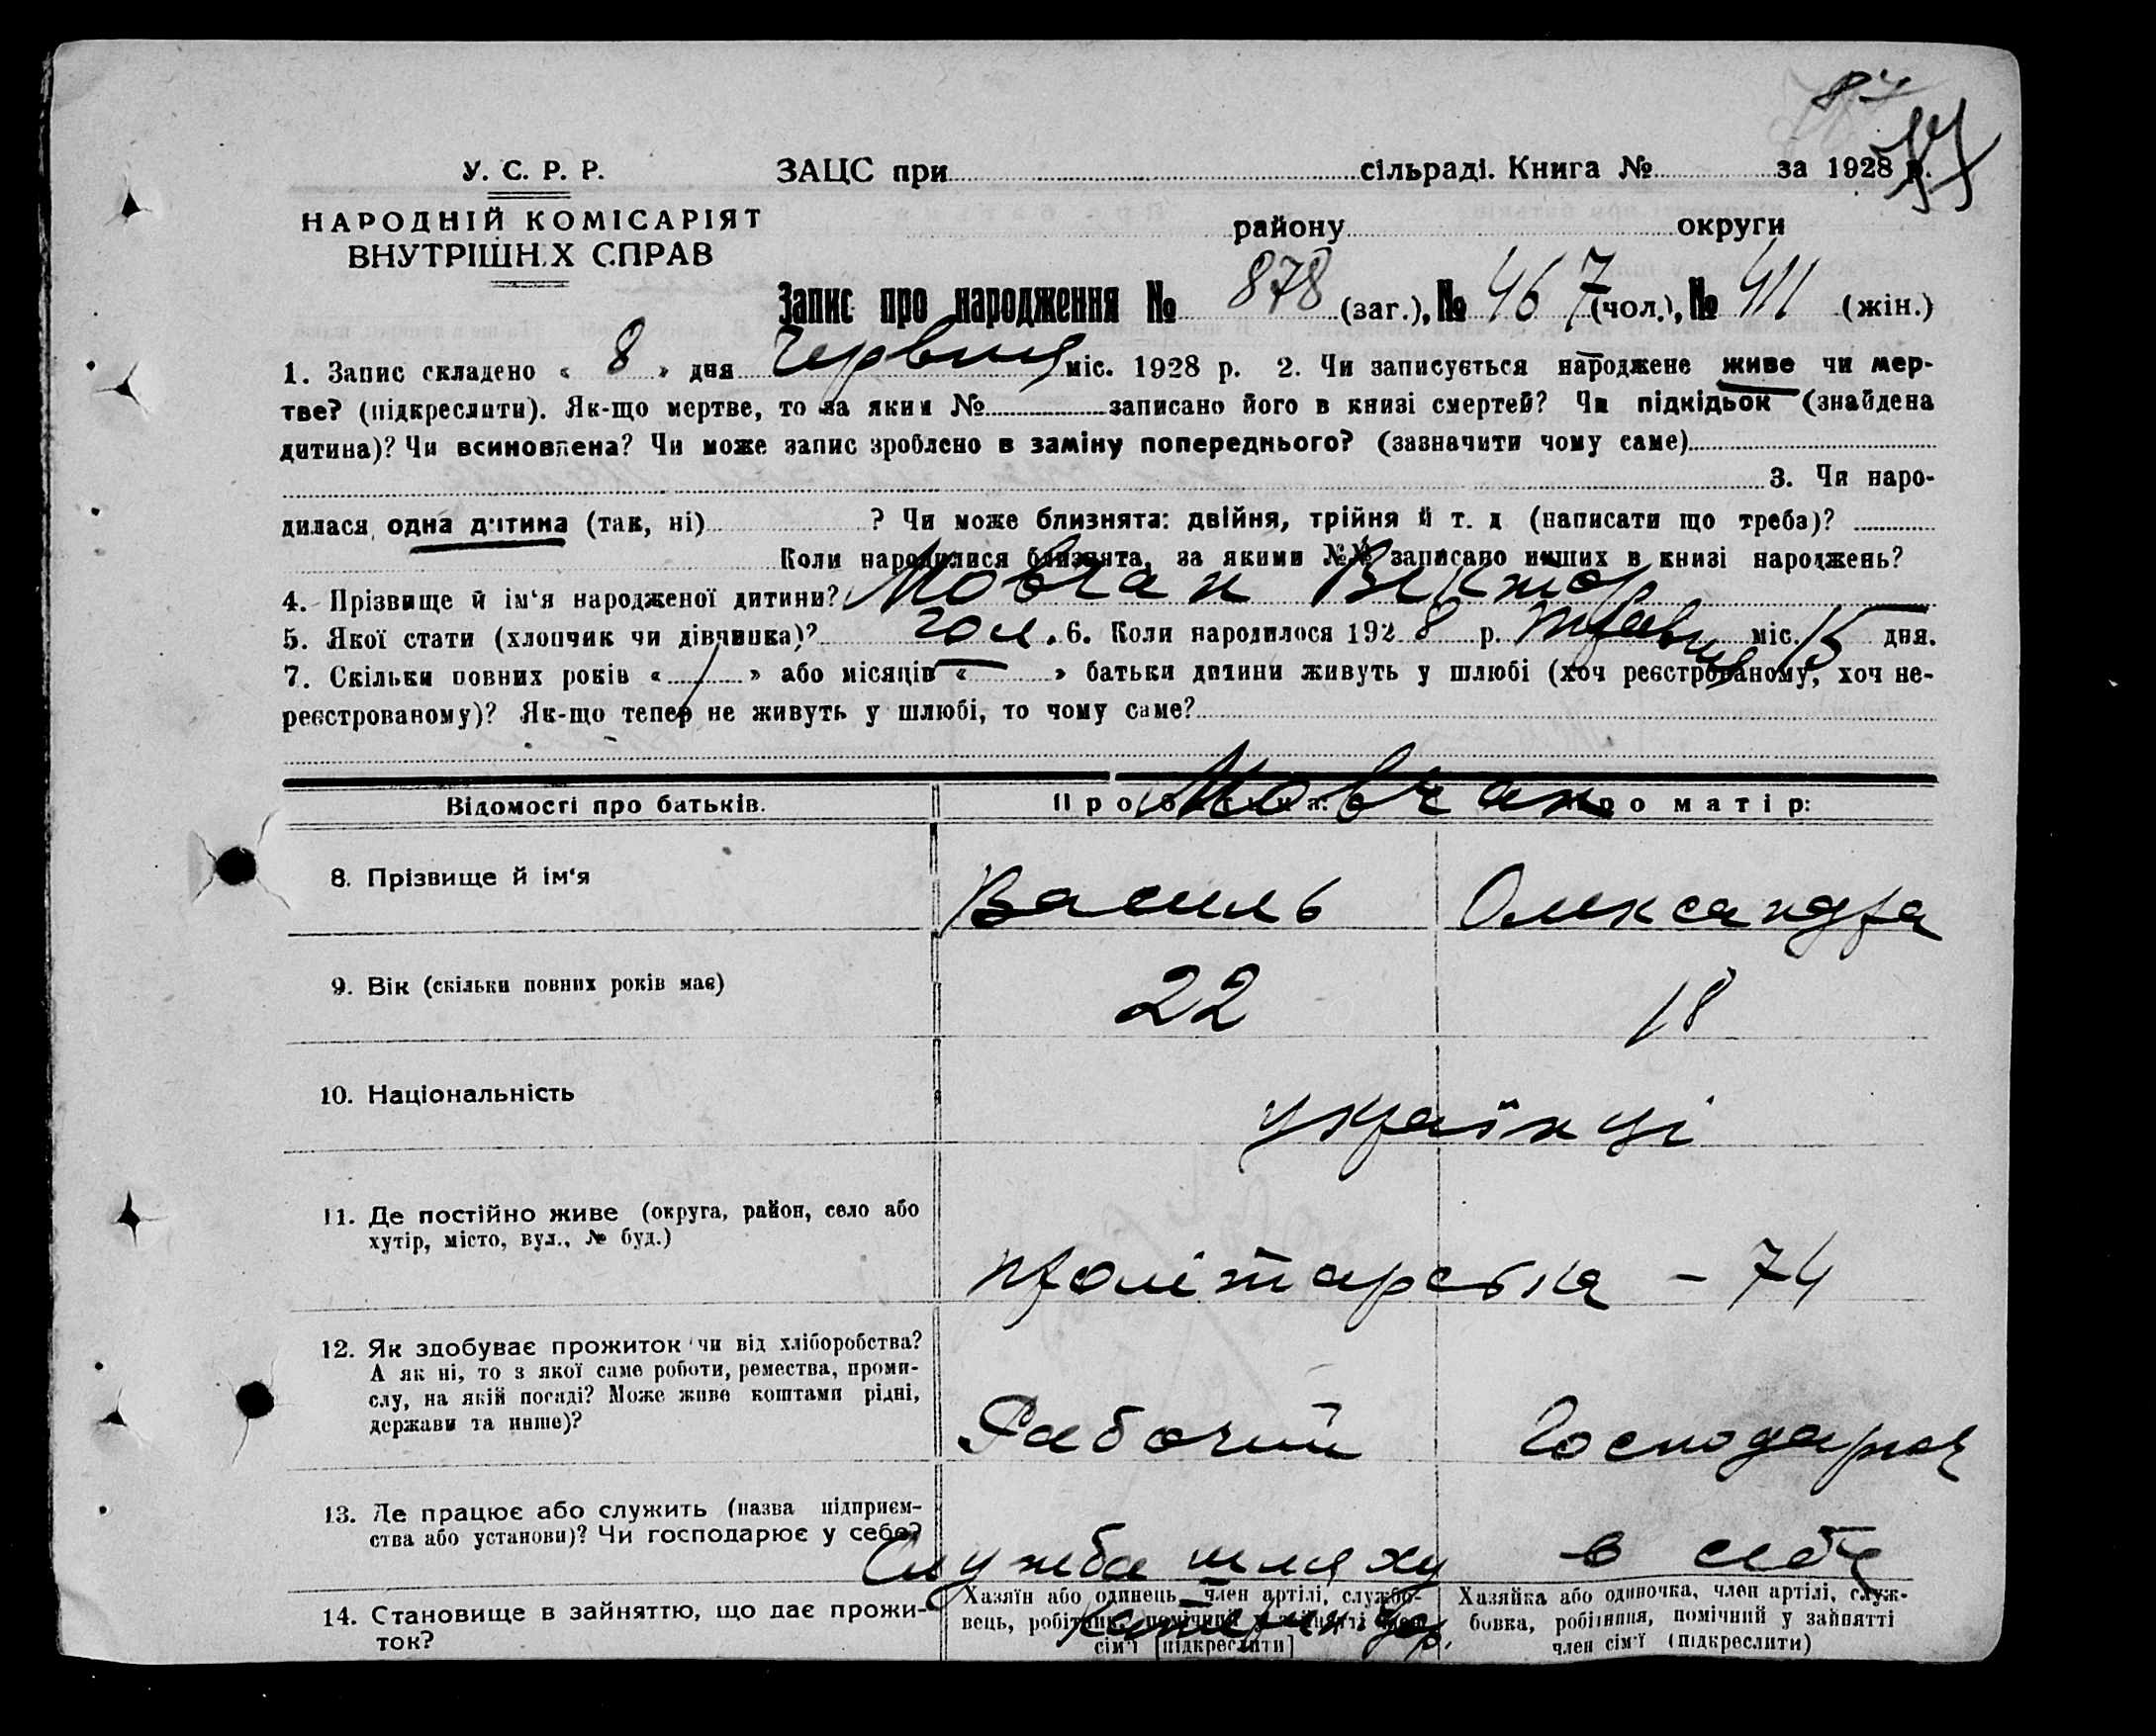 84
77
У. С. Р. Р.
ЗАЦС при сільраді. Книга № за 1928 р.
НАРОДНІЙ КОМІСАРІЯТ
району округи
ВНУТРІШНІХ СПРАВ
Запис про народження № 878 (заг.), № 467 (чол.), № 411 (жін.)
1. Запис складено « 8 » дня Червня міс. 1928 р. 2. Чи записується народжене живе чи мер-
тве? (підкреслити). Як-що мертве, то за яким № записано його в книзі смертей? Чи підкідьок (знайдена
дитина)? Чи всиновлена? Чи може запис зроблено в заміну попереднього? (зазначити чому саме)
3. Чи наро-
дилася одна дитина (так, ні) ? Чи може близнята: двійня, трійня й т. д (написати що треба)?
Коли народилися близнята, за якими №№ записано инших в книзі народжень?
4. Прізвище й ім‘я народженої дитини? Мовчан Виктор
5. Якої стати (хлопчик чи дівчинка)? чол. 6. Коли народилося 1928 р. травня міс. 15 дня.
7. Скільки повних років « 1 » або місяців « — » батьки дитини живуть у шлюбі (хоч реєстрованому, хоч не-
реєстрованому)? Як-що тепер не живуть у шлюбі, то чому саме?
Мовчан
Відомості про батьків. Про батька: Про матір:
8. Прізвище й ім‘я Василь Олександра
9. Вік (скільки повних років має) 22 18
10. Національність українці
11. Де постійно живе (округа, район, село або
хутір, місто, вул., № буд.)
пролітарська – 74
12. Як здобуває прожиток чи від хліборобства?
А як ні, то з якої саме роботи, ремества, проми-
слу, на якій посаді? Може живе коштами рідні,
держави та инше)?
Рабочий Господарка
13. Де працює або служить (назва підприєм-
ства або установи)? Чи господарює у себе?
Служба шляху в себе
14. Становище в зайняттю, що дає прожи-
ток?
Хазяїн або одинець, член артілі, службо-
вець, робітник, помічний у зайнятті член
сім‘ї [підкреслити]
Хазяйка або одиночка, член артілі, служ-
бовка, робітниця, помічний у зайнятті
член сім‘ї (підкреслити)